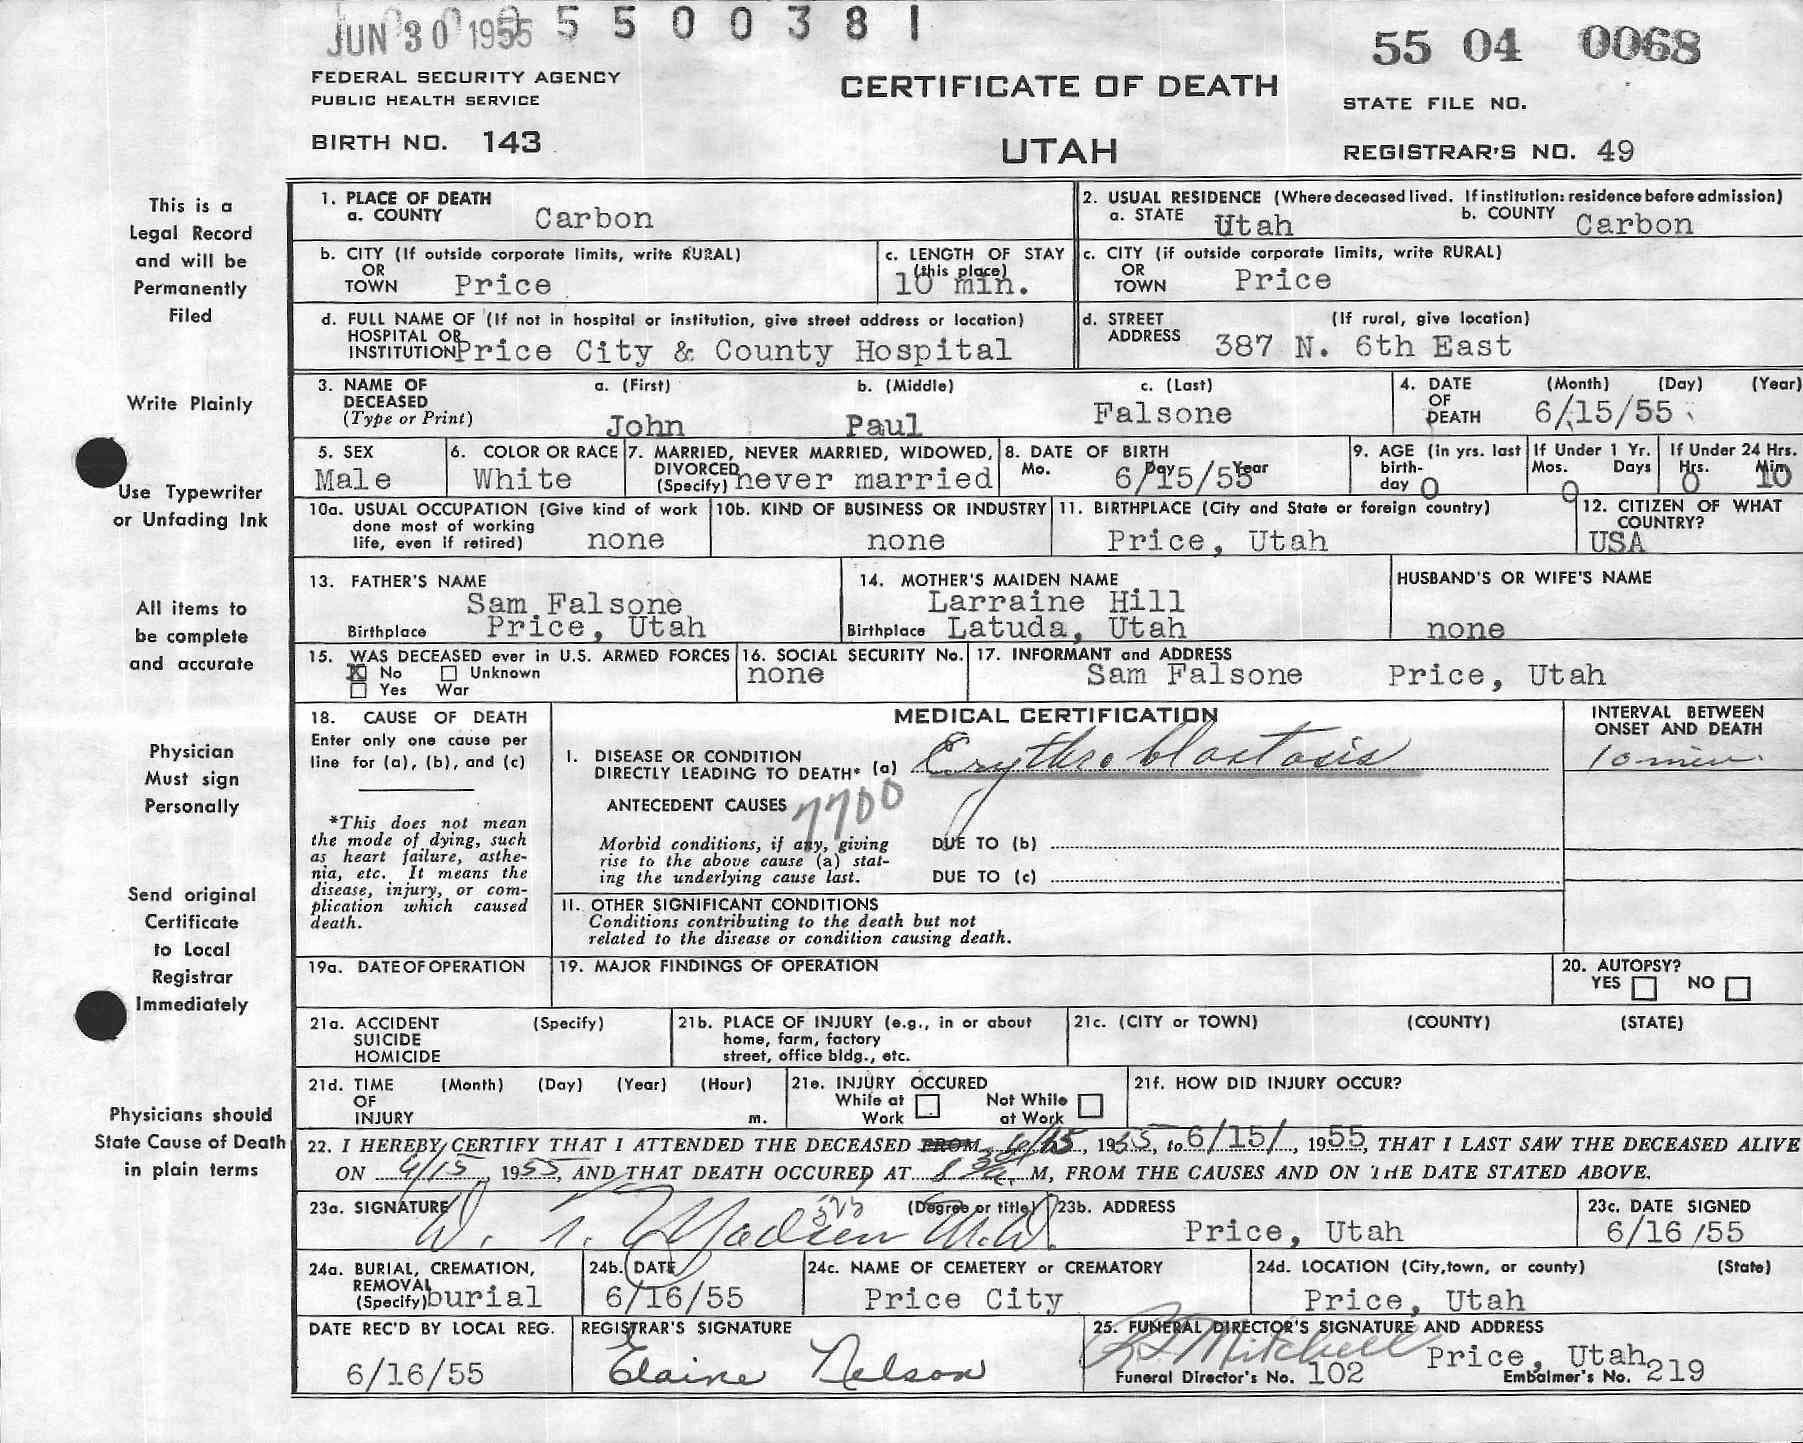 JUN 30 1955 5 5 0 0 3 8 1
55 04 0068
FEDERAL SECURITY AGENCY
PUBLIC HEALTH SERVICE
CERTIFICATE OF DEATH
STATE FILE NO.
BIRTH NO. 143
UTAH
REGISTRAR'S NO. 49
This is a
Legal Record
and will be
Permanently
Filed
Write Plainly
Use Typewriter
or Unfading Ink
All items to
be complete
and accurate
Physician
Must sign
Personally
Send original
Certificate
to Local
Registrar
Immediately
Physicians should
State Cause of Death
in plain terms
1. PLACE OF DEATH
a. COUNTY Carbon
2. USUAL RESIDENCE (Where deceased lived. If institution: residence before admission)
a. STATE Utah b. COUNTY Carbon
b. CITY (If outside corporate limits, write RURAL)
OR
TOWN Price
c. LENGTH OF STAY
(this place)
10 min.
c. CITY (if outside corporate limits, write RURAL)
OR
TOWN Price
d. FULL NAME OF (If not in hospital or institution, give street address or location)
HOSPITAL OR
INSTITUTION Price City & County Hospital
d. STREET (If rural, give location)
ADDRESS 387 N. 6th East
3. NAME OF DECEASED
(Type or Print)
a. (First) b. (Middle) c. (Last)
John Paul Falsone
4. DATE OF DEATH (Month) (Day) (Year)
6/15/55
5. SEX
Male
6. COLOR OR RACE
White
7. MARRIED, NEVER MARRIED, WIDOWED,
DIVORCED
(Specify) never married
8. DATE OF BIRTH
Mo. Day Year
6/15/55
9. AGE (in yrs. last
birth-
day 0
If Under 1 Yr.
Mos. Days
0
If Under 24 Hrs.
Hrs. Min.
0 10
10a. USUAL OCCUPATION (Give kind of work
done most of working
life, even if retired) none
10b. KIND OF BUSINESS OR INDUSTRY
none
11. BIRTHPLACE (City and State or foreign country)
Price, Utah
12. CITIZEN OF WHAT
COUNTRY?
USA
13. FATHER'S NAME
Sam Falsone
Birthplace Price, Utah
14. MOTHER'S MAIDEN NAME
Larraine Hill
Birthplace Latuda, Utah
HUSBAND'S OR WIFE'S NAME
none
15. WAS DECEASED ever in U.S. ARMED FORCES
X No Unknown
Yes War
16. SOCIAL SECURITY No.
none
17. INFORMANT and ADDRESS
Sam Falsone Price, Utah
18. CAUSE OF DEATH
Enter only one cause per
line for (a), (b), and (c)
*This does not mean
the mode of dying, such
as heart failure, asthe-
nia, etc. It means the
disease, injury, or com-
plication which caused
death.
MEDICAL CERTIFICATION
INTERVAL BETWEEN
ONSET AND DEATH
I. DISEASE OR CONDITION
DIRECTLY LEADING TO DEATH* (a) Erythroblastosis
10 min.
ANTECEDENT CAUSES 7700
Morbid conditions, if any, giving
rise to the above cause (a) stat-
ing the underlying cause last.
DUE TO (b)
DUE TO (c)
II. OTHER SIGNIFICANT CONDITIONS
Conditions contributing to the death but not
related to the disease or condition causing death.
19a. DATE OF OPERATION
19. MAJOR FINDINGS OF OPERATION
20. AUTOPSY?
YES NO
21a. ACCIDENT (Specify)
SUICIDE
HOMICIDE
21b. PLACE OF INJURY (e.g., in or about
home, farm, factory
street, office bldg., etc.
21c. (CITY or TOWN) (COUNTY) (STATE)
21d. TIME (Month) (Day) (Year) (Hour)
OF
INJURY m.
21e. INJURY OCCURED
While at Work Not While at Work
21f. HOW DID INJURY OCCUR?
22. I HEREBY CERTIFY THAT I ATTENDED THE DECEASED FROM 6/15, 1955, to 6/15/, 1955, THAT I LAST SAW THE DECEASED ALIVE
ON 6/15, 1955, AND THAT DEATH OCCURED AT M, FROM THE CAUSES AND ON THE DATE STATED ABOVE.
23a. SIGNATURE (Degree or title)
W. Madsen M.D.
23b. ADDRESS
Price, Utah
23c. DATE SIGNED
6/16/55
24a. BURIAL, CREMATION,
REMOVAL
(Specify) burial
24b. DATE
6/16/55
24c. NAME OF CEMETERY or CREMATORY
Price City
24d. LOCATION (City, town, or county) (State)
Price, Utah
DATE REC'D BY LOCAL REG.
6/16/55
REGISTRAR'S SIGNATURE
Elaine Nelson
25. FUNERAL DIRECTOR'S SIGNATURE AND ADDRESS
Mitchell Price, Utah
Funeral Director's No. 102 Embalmer's No. 219